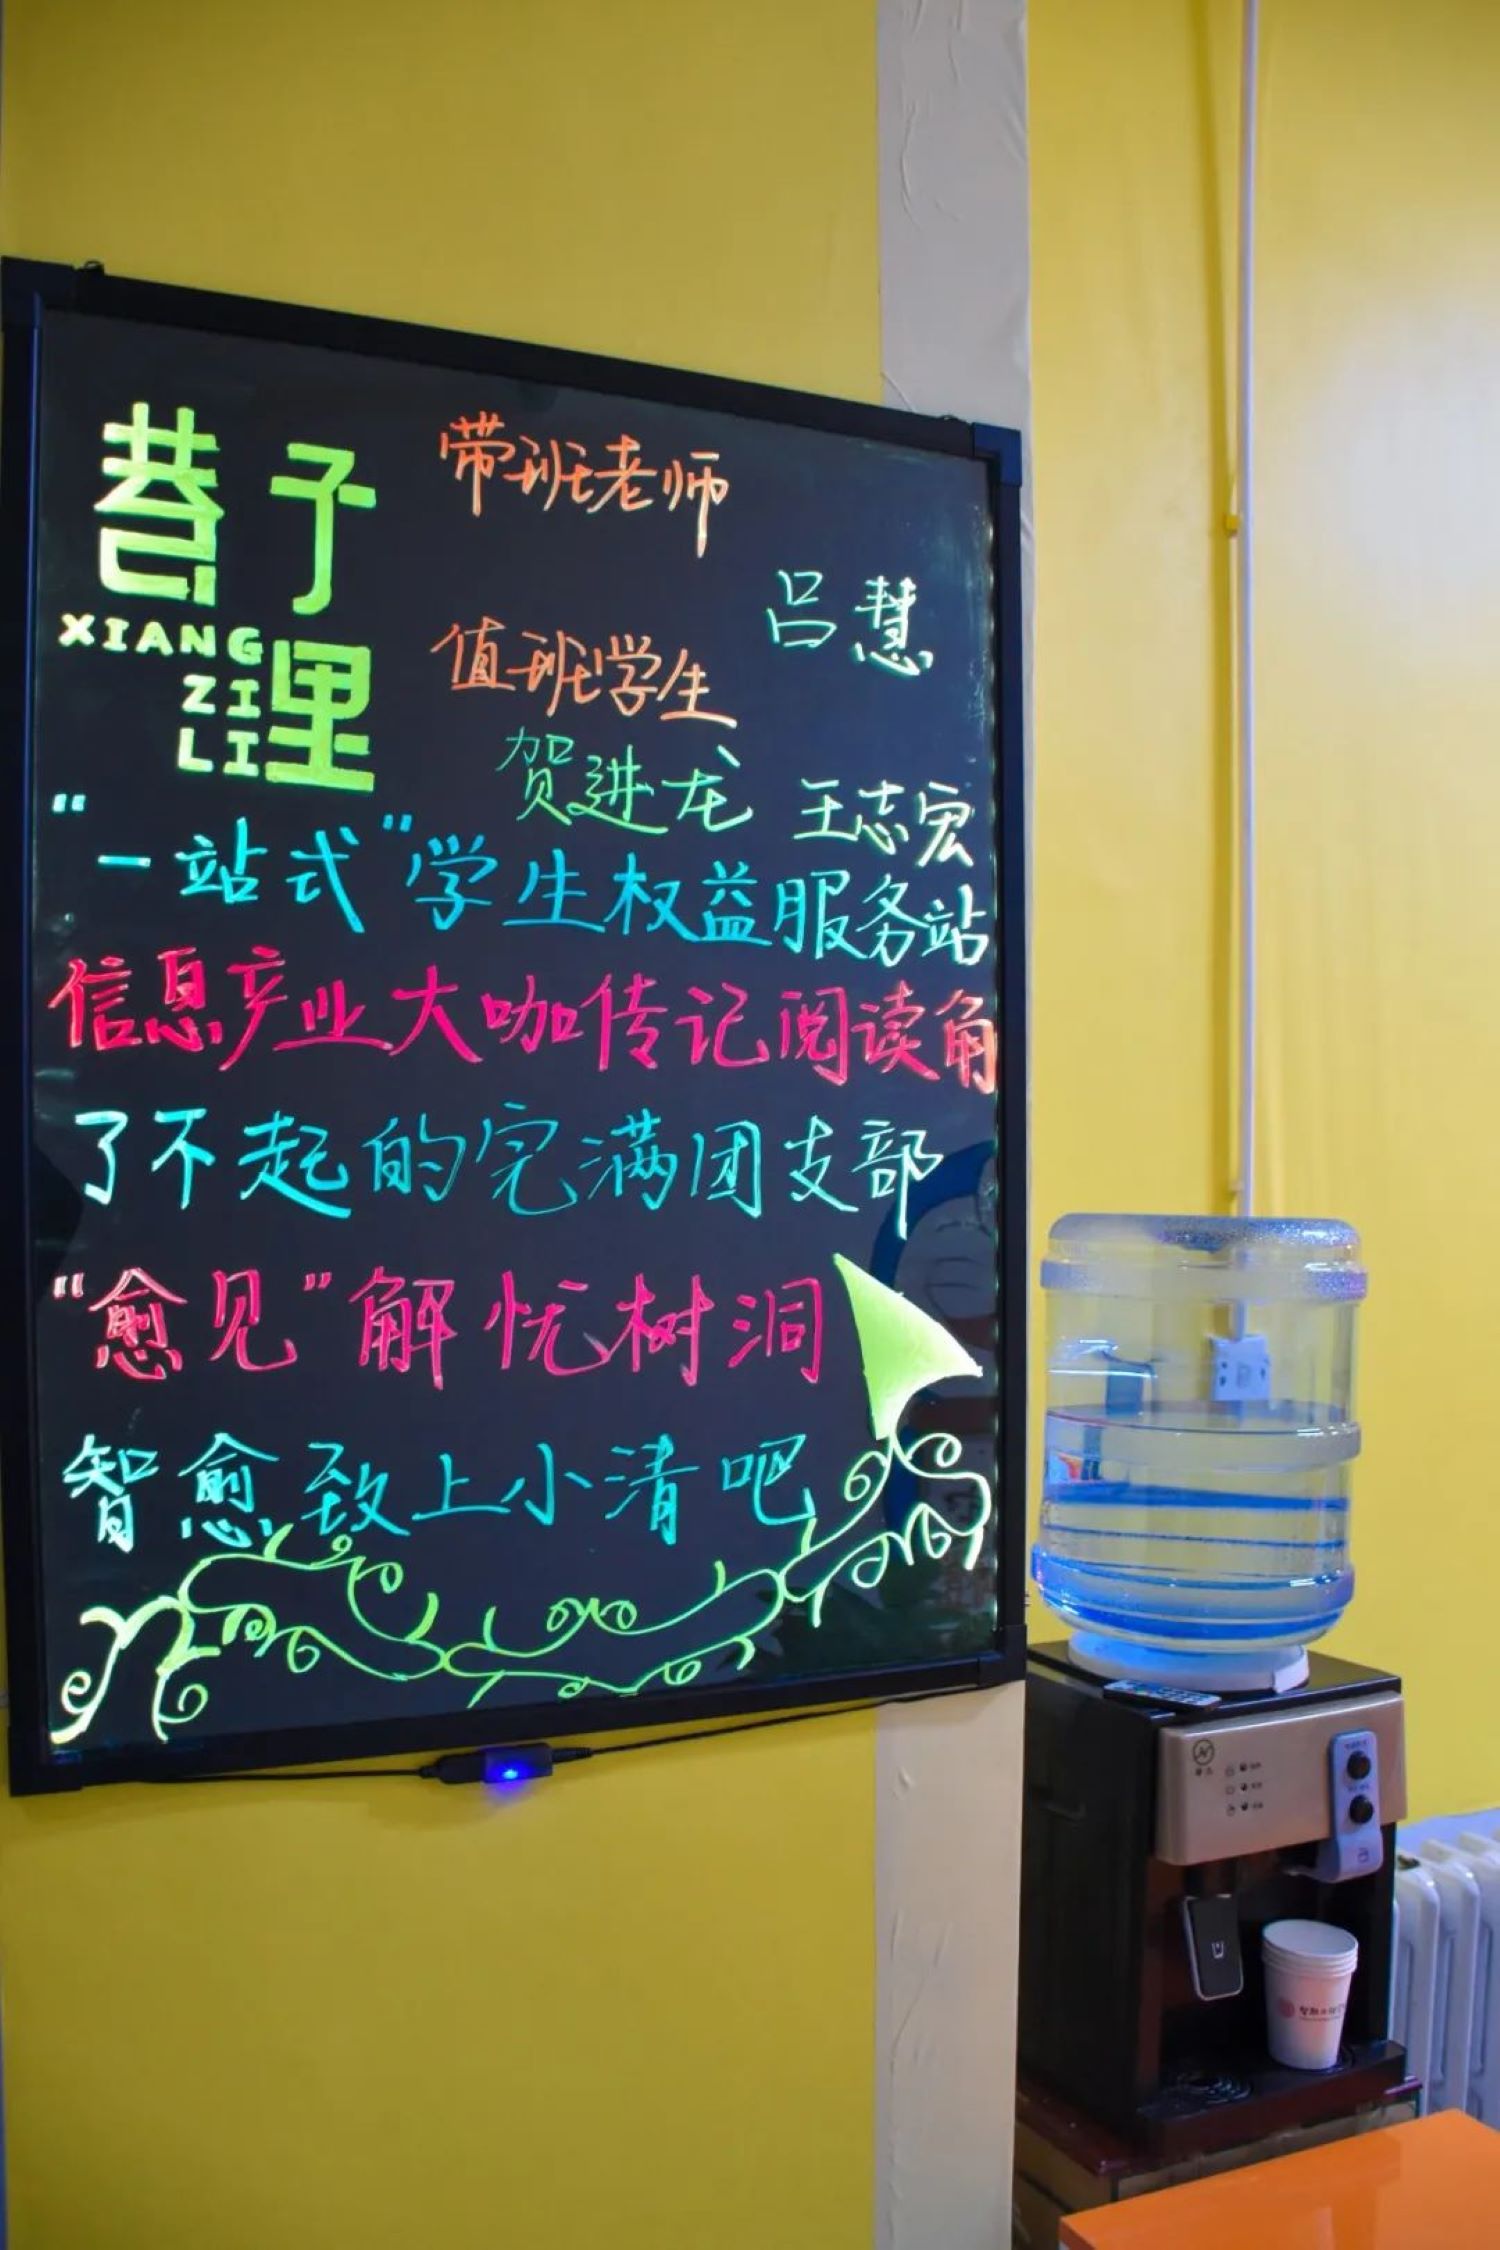 巷子里
XIANG
ZI
LI
带班老师
吕慧
值班学生
贺进龙 王志宏
“一站式”学生权益服务站
信息产业大咖传记阅读角
了不起的完满团支部
“愈见”解忧树洞
智愈致上小清吧